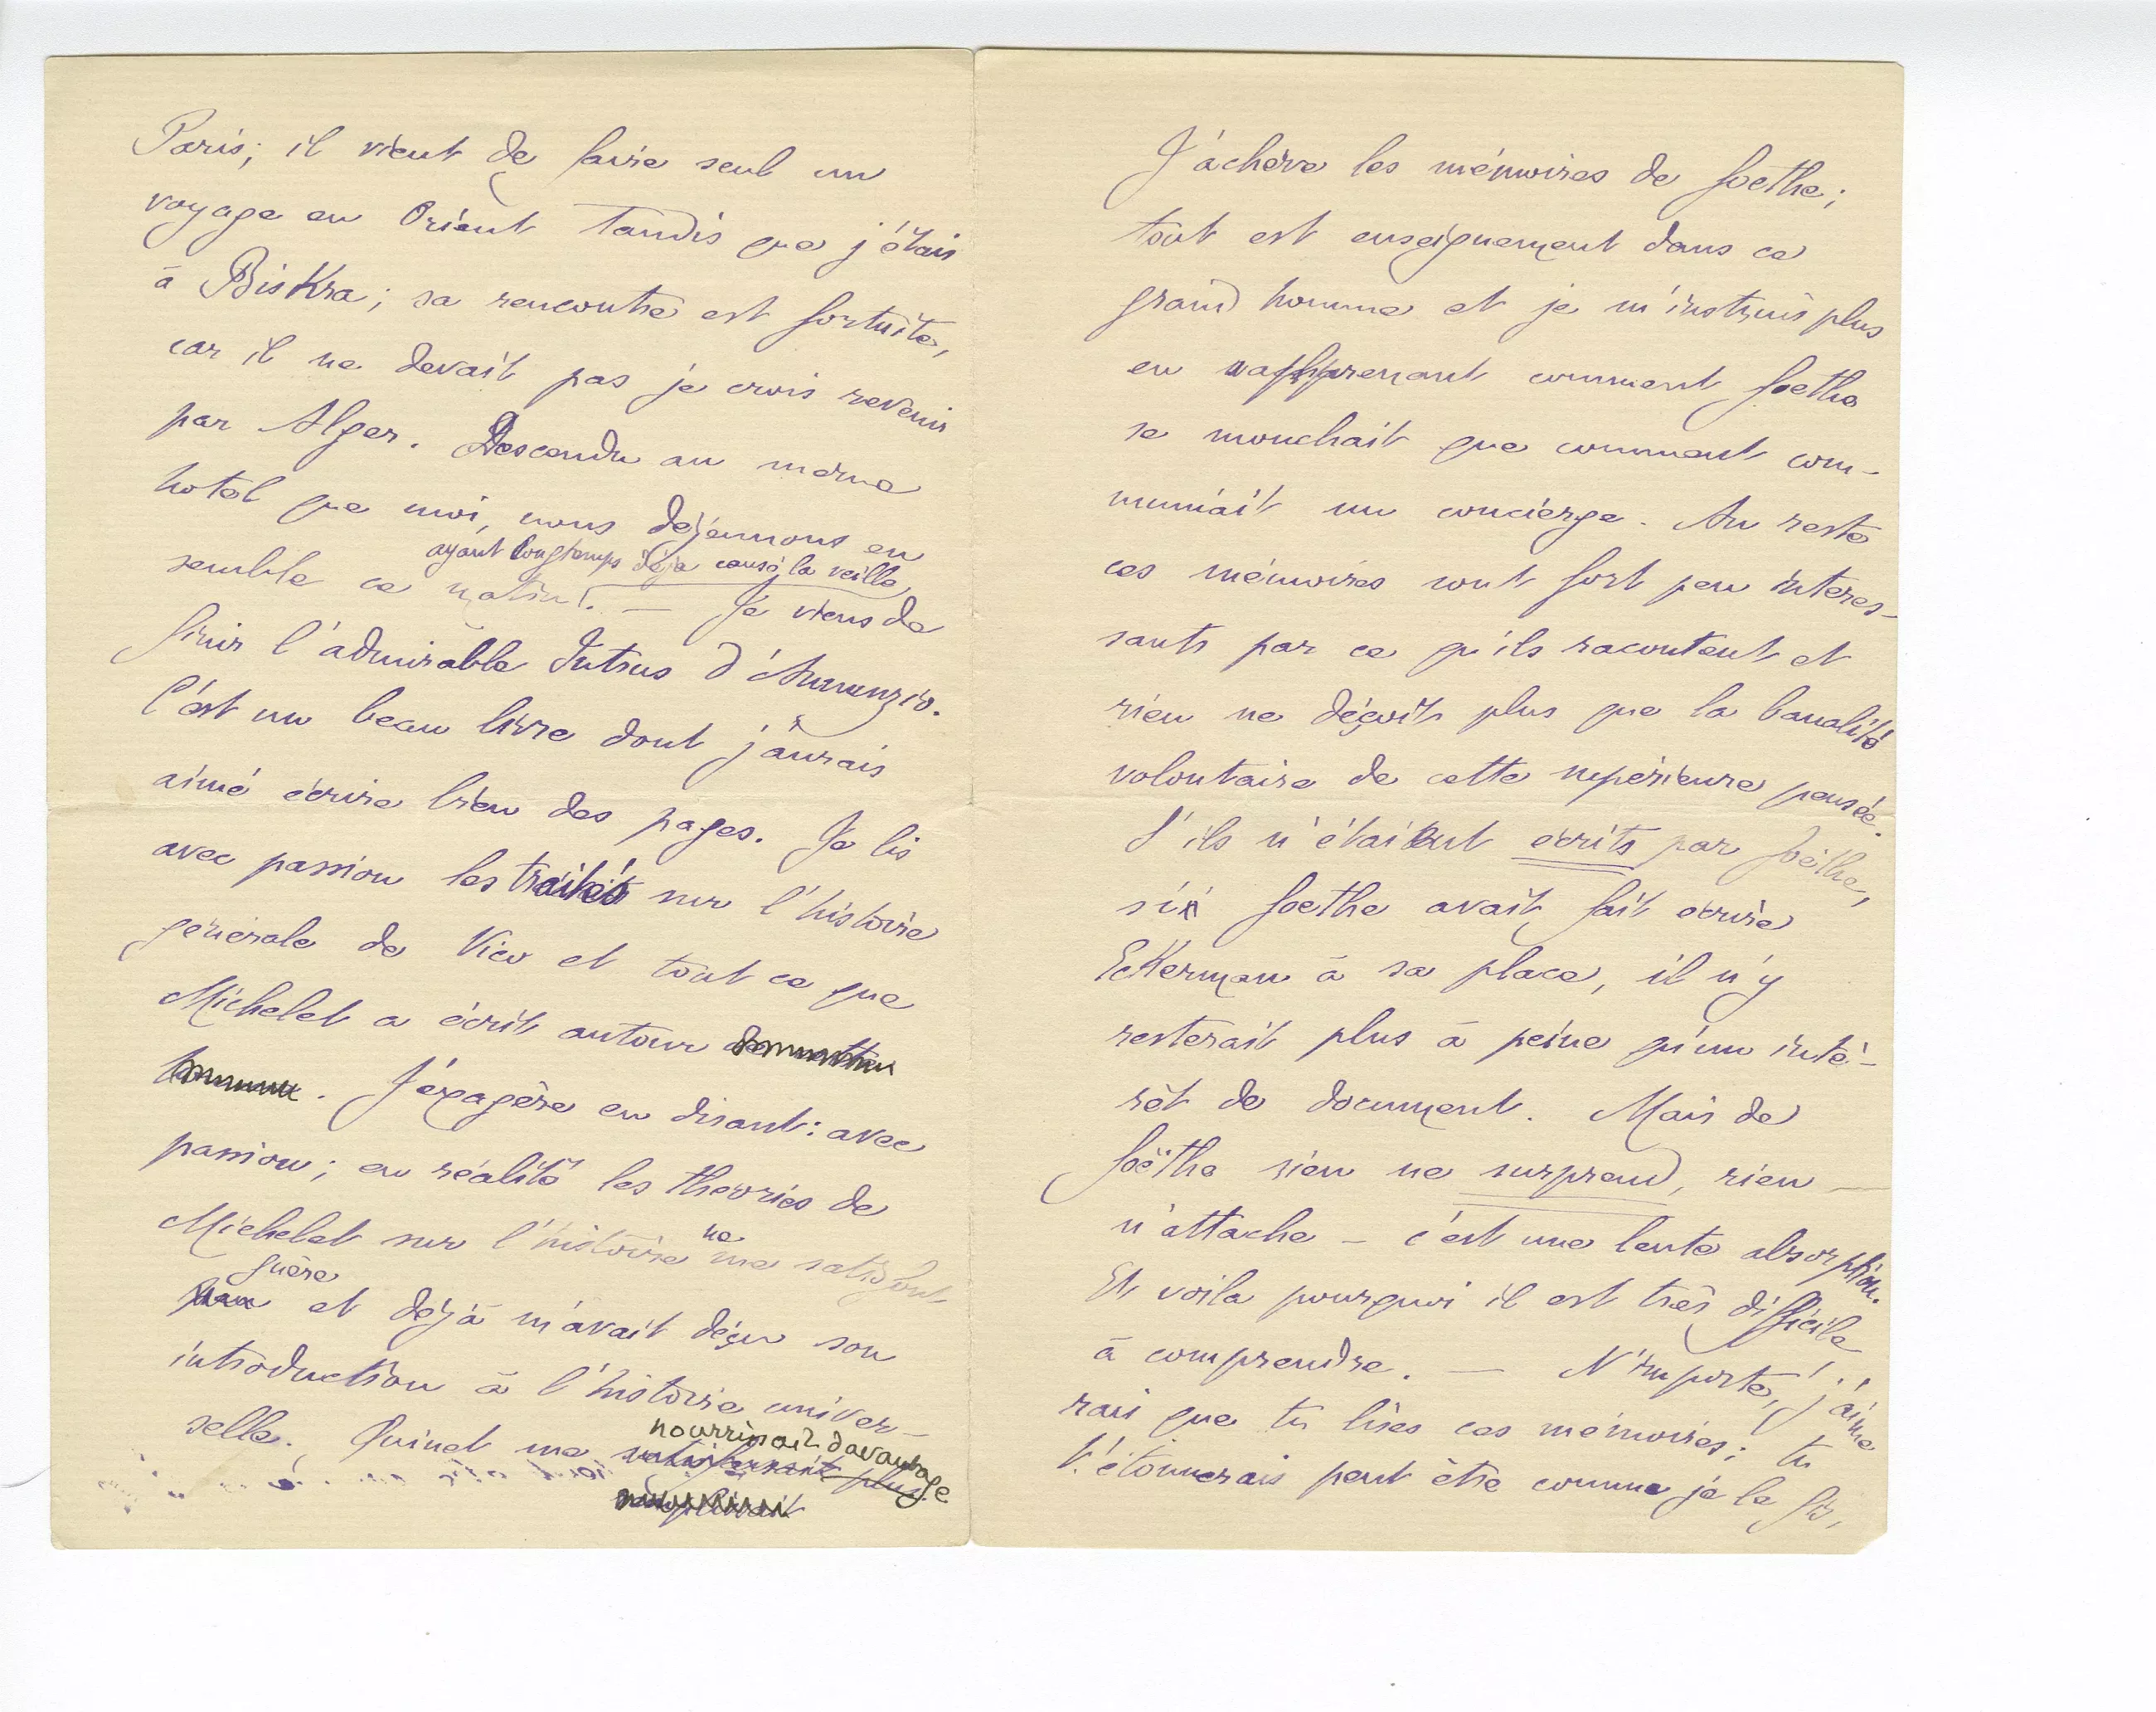 Paris; il vient de faire seul un
voyage en Orient tandis que j'étais
à Biskra; sa rencontre est fortuite,
car il ne devait pas je crois revenir
par Alger. Descendu au même
hotel que moi, nous déjeunons en
ayant longtemps déja causé la veille
semble ce matin. — Je viens de
finir l'admirable Intrus d'Annunzio.
C'est un beau livre dont j'aurais
aimé écrire bien des pages. Je lis
avec passion les traités sur l'histoire
générale de Vico et tout ce que
Michelet a écrit autour
. J'éxagère en disant: avec
passion; en réalité les théories de
ne
Michelet sur l'histoire me satisfont
guère
et déjà m'avait déçu son
introduction à l'histoire univer-
nourrissait davantage
selle. Quinet me satisfaisait plus
J'achève les mémoires de Goethe;
tout est enseignement dans ce
grand homme et je m'instruis plus
en apprenant comment Goethe
se mouchait que comment com-
muniait un concierge. Au reste
ces mémoires sont fort peu intéres-
sants par ce qu'ils racontent et
rien ne déçoit plus que la banalité
volontaire de cette supérieure pensée.
S'ils n'étaient écrits par Goethe,
si Goethe avait fait écrire
Eckerman à sa place, il n'y
resterait plus à peine qu'un inté-
rêt de document. Mais de
Goëthe rien ne surprend, rien
n'attache – c'est une lente absorption.
Et voila pourquoi il est très difficile
à comprendre. — N'importe, j'aime
rais que tu lises ces mémoires; tu
t'étonnerais peut être comme je le fis,